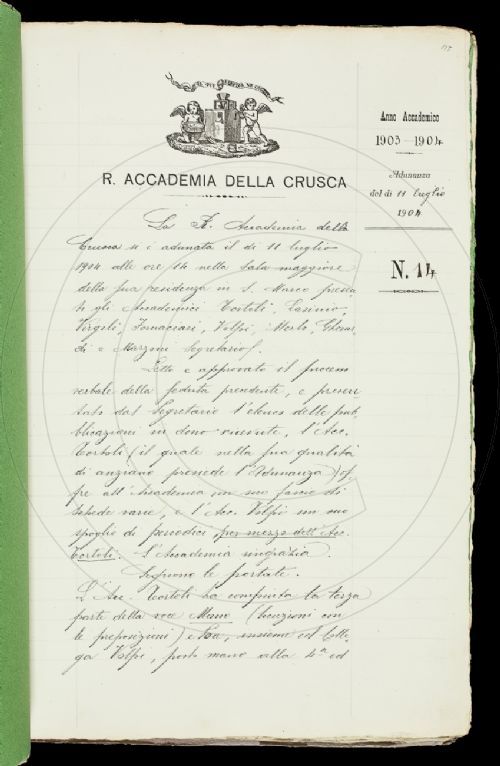 Anno Accademico
1903-1904
Adunanza
del dì 11 luglio
1904
N. 14
R. ACCADEMIA DELLA CRUSCA
La R. Accademia della
Crusca si è adunata il dì 11 luglio
1904 alle ore 14 nella sala maggiore
della sua residenza in S. Marco presen-
ti gli Accademici Tortoli, Casini,
Virgilî, Fornaciari, Volpi, Merlo, Gherar-
di e Mazzoni Segretario.
Letto e approvato il processo
verbale della seduta precedente, e presen-
tato dal Segretario l'elenco delle pub-
blicazioni in dono ricevute, l'Acc.
Tortoli (il quale nella sua qualità
di anziano presiede l'Adunanza) of-
fre all'Accademia un suo fascio di
schede varie, e l'Acc. Volpi un suo
spoglio di periodici per mezzo dell'Acc.
Tortoli. L'Accademia ringrazia.
Seguono le portate.
L'Acc. Tortoli ha compiuta la terza
parte della voce Mano (locuzioni con
le preposizioni) e ora, insieme col Colle-
ga Volpi, pone mano alla 4ª ed